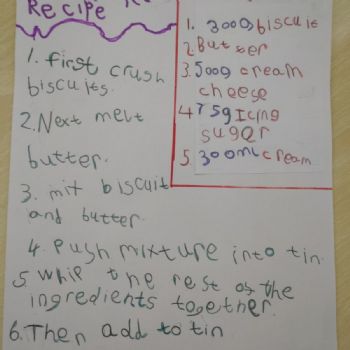 Recipe
1. 300g biscuit
2. Butter
3. 500g cream
cheese
4 75g Icing
suger
5. 300ml cream
1. first crush
biscuits.
2. Next melt
butter.
3. mit biscuit
and butter.
4. Push mixture into tin.
5. Whip the rest of the
ingredients together.
6. Then add to tin